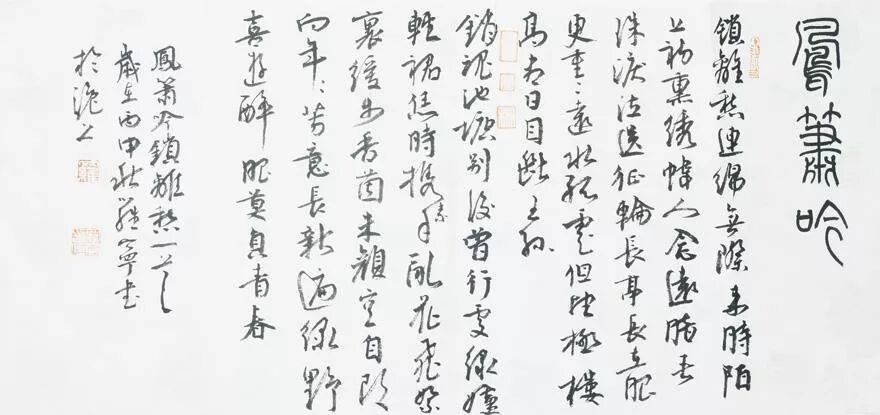 鳳簫吟
鎖離愁連綿無際来時陌
上初熏绣幃人念遠暗垂
珠淚泣送征輪長亭長在眼
更重〻遠水孤雲但望極樓
高尽日目斷王孫
銷魂池塘別後曾行處綠妒
輕裙恁時攜素手亂花飛絮
裏緩步香茵朱顏空自改
向年〻芳意長新遍綠野
喜遊醉眠莫負青春
鳳簫吟鎖離愁一首
歲在丙申秋寧书
於滬上